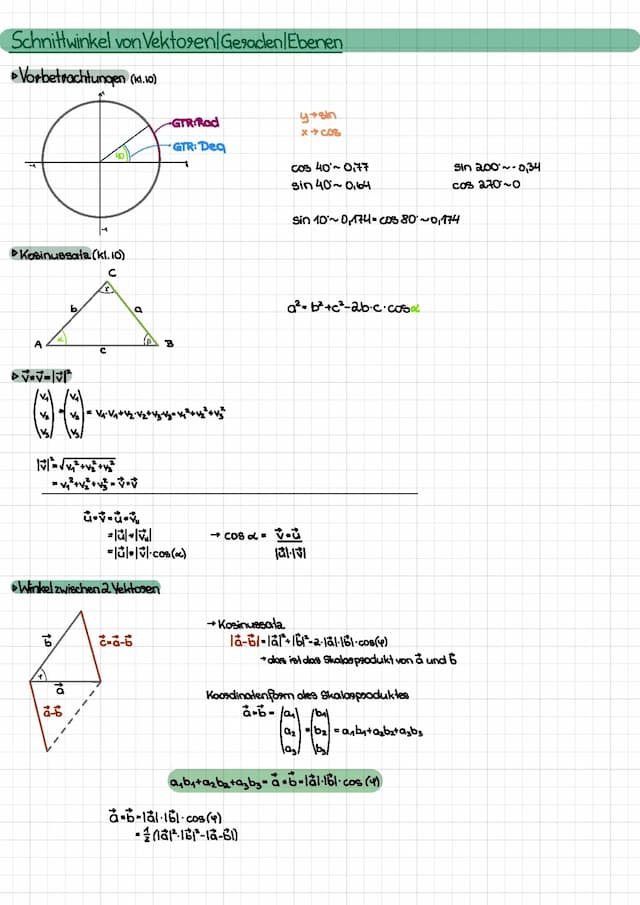 Schnittwinkel von Vektoren/Geraden/Ebenen
▹Vorbetrachtungen (kl.10)
1
GTR:Rad
GTR:Deg
40
-1
1
-1
y→sin
x→cos
cos 40°~0,77
sin 200°~-0,34
sin 40°~0,64
cos 270°~0
sin 10°~0,174=cos 80°~0,174
▹Kosinussatz (kl.10)
C
γ
b
a
A
α
β
B
c
a²=b²+c²-2b·c·cosα
▹v⃗∘v⃗=|v⃗|²
(v₁ v₂ v₃)∘(v₁ v₂ v₃) = v₁·v₁+v₂·v₂+v₃·v₃=v₁²+v₂²+v₃²
|v⃗|²=√v₁²+v₂²+v₃²
=v₁²+v₂²+v₃²=v⃗∘v⃗
u⃗∘v⃗=u⃗∘v⃗ᵤ
=|u⃗|∘|v⃗ᵤ|
=|u⃗|∘|v⃗|·cos(α)
→ cos α = v⃗∘u⃗ / |u⃗|·|v⃗|
▹Winkel zwischen 2 Vektoren
b⃗
c⃗=a⃗-b⃗
a⃗
a⃗-b⃗
→Kosinussatz
|a⃗-b⃗|=|a⃗|²+|b⃗|²-2·|a⃗|·|b⃗|·cos(φ)
→das ist das Skalarprodukt von a⃗ und b⃗
Koordinatenform des Skalarproduktes
a⃗∘b⃗ = (a₁ a₂ a₃)∘(b₁ b₂ b₃) = a₁b₁+a₂b₂+a₃b₃
a₁b₁+a₂b₂+a₃b₃= a⃗∘b⃗=|a⃗|·|b⃗|·cos(φ)
a⃗∘b⃗=|a⃗|·|b⃗|·cos(φ)
=½(|a⃗|²·|b⃗|²-|a⃗-b⃗|)